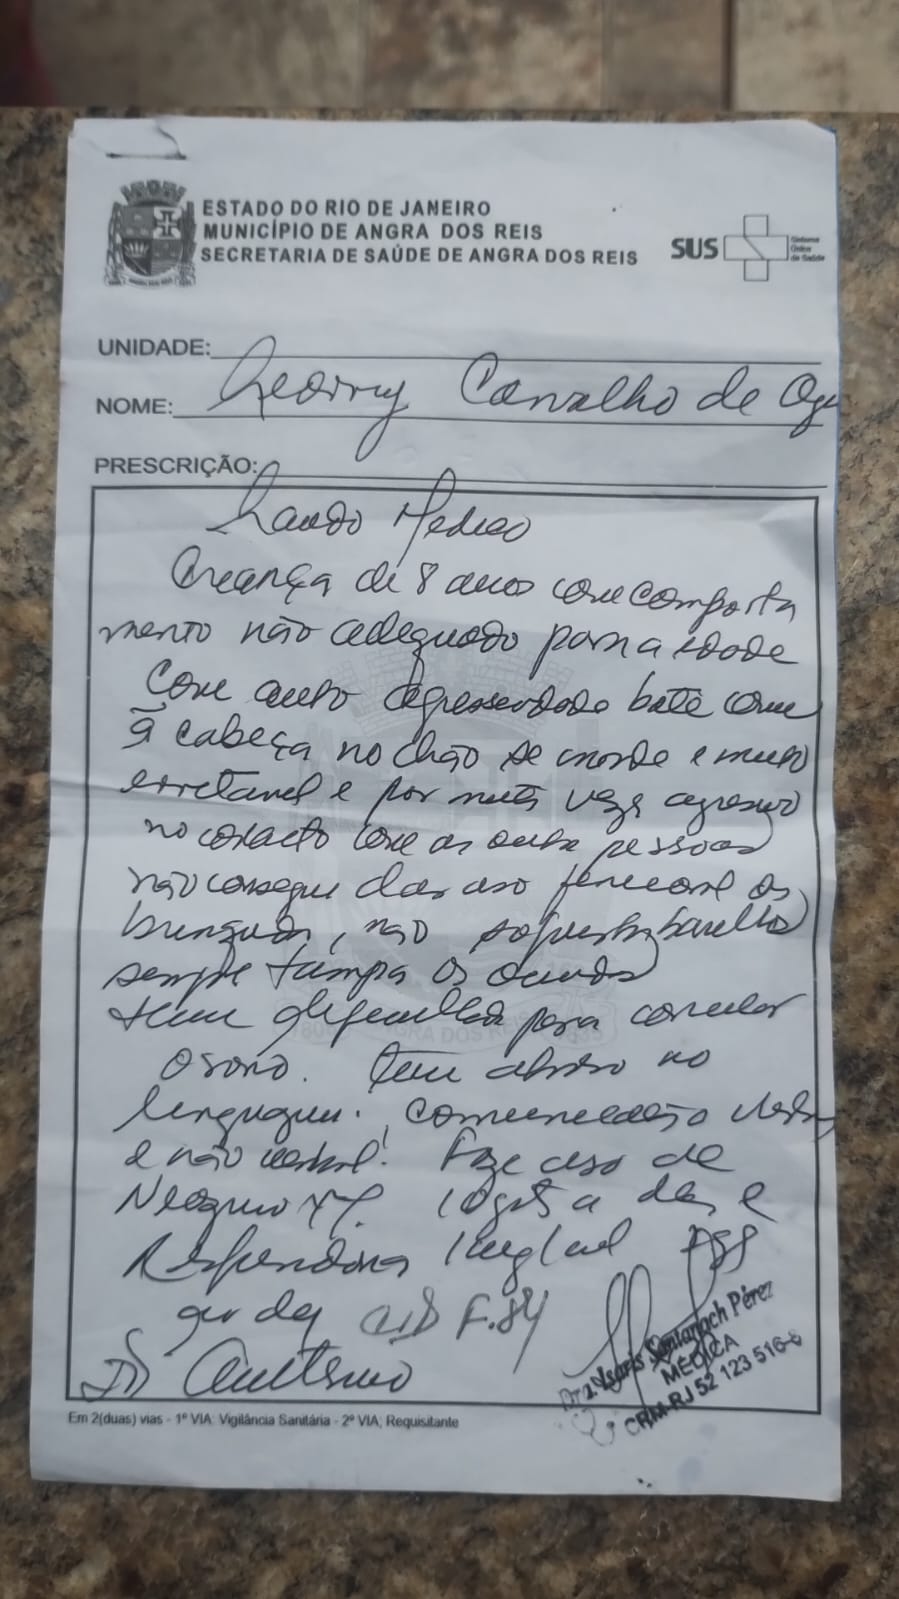 ESTADO DO RIO DE JANEIRO
MUNICÍPIO DE ANGRA DOS REIS
SECRETARIA DE SAÚDE DE ANGRA DOS REIS
SUS Sistema Único de Saúde
UNIDADE:
NOME: Carvalho de
PRESCRIÇÃO:
Laudo Medico
Creança de 8 anos com comporta
mento não adequado para a idade
Com auto agressevidade bate com
a cabeça no chão se morde e muito
erretavel e por muitas vezes agresivo
no contacto com as outra pessoas
não consegue dar uso funcional os
brinquedos, não barulho
sempre tampa os ouvidos
tem para conciliar
o sono. Tem atraso no
linguagem, comunicação verbal
e não verbal. Faze uso de
Neozine
Risperidona 1mg/ml
CID F.84
Autismo
Pérez
MÉDICA
CRM-RJ 52 123 516-6
Em 2(duas) vias - 1º VIA: Vigilância Sanitária - 2º VIA; Requisitante